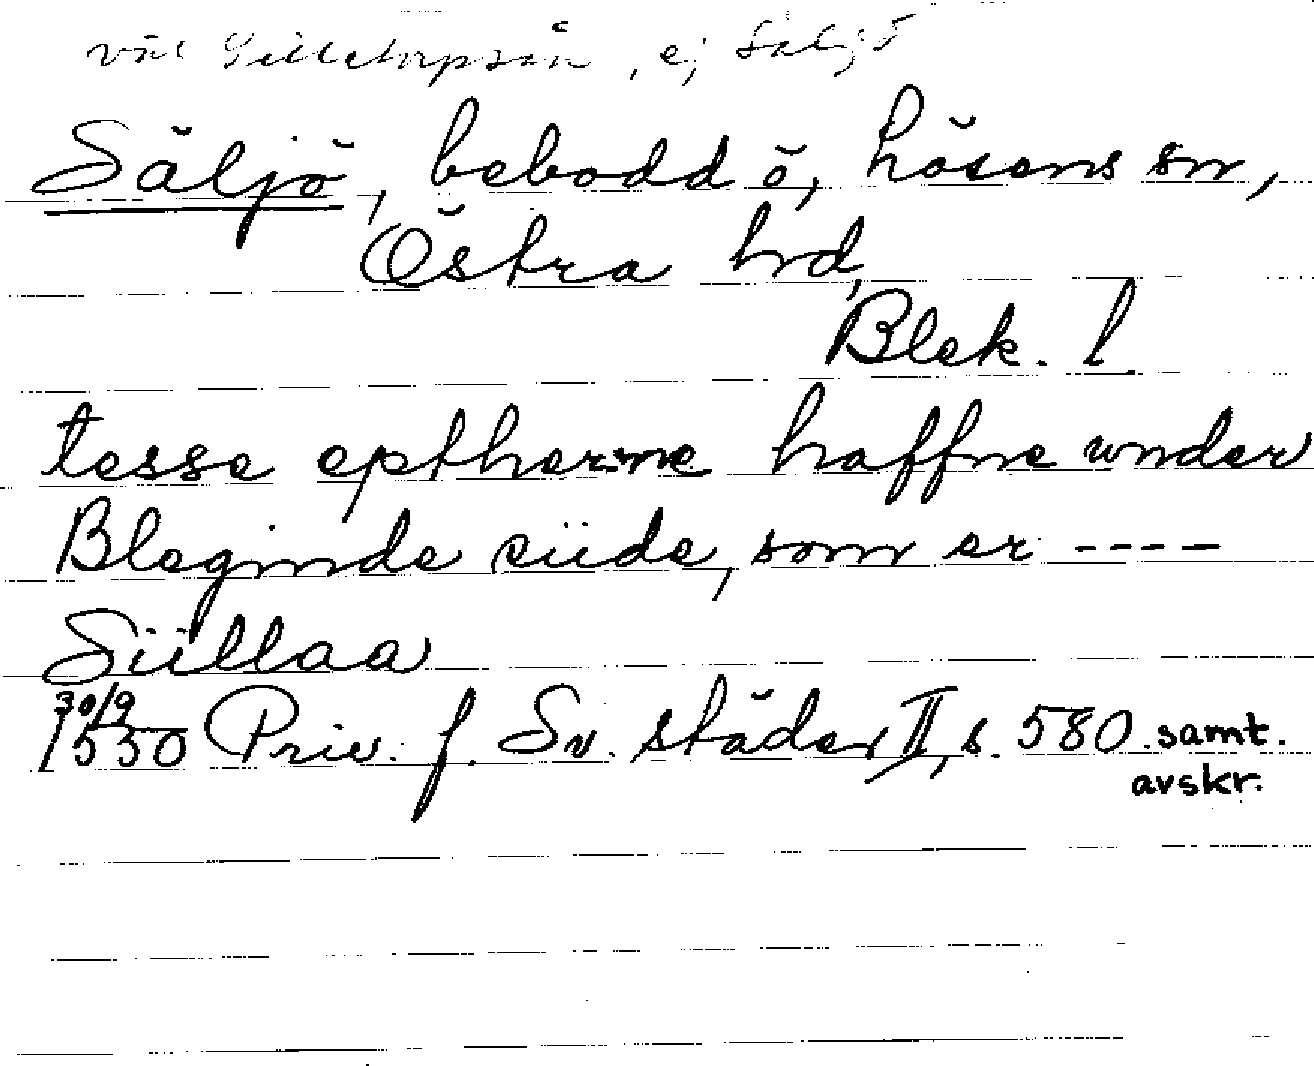 väl Silletorpsån, ej Säljö
Säljö, bebodd ö, Lösens sn,
Östra hrd,
Blek. l
tesse eptherne haffne under
Bleginde siide, som er ----
Siillaa
30/9
1550 Priv. f. Sv. städer II, s. 580 samt.
avskr.